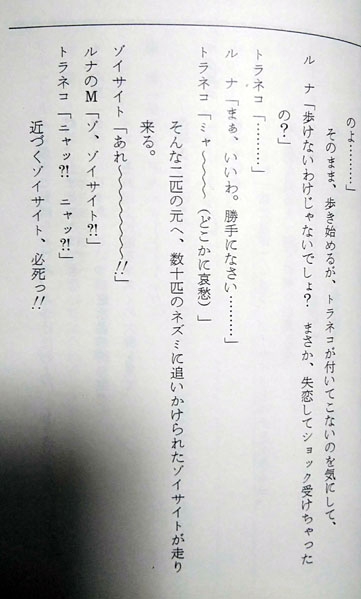 のよ………」
そのまま、歩き始めるが、トラネコが付いてこないのを気にして、
ルナ「歩けないわけじゃないでしょ？　まさか、失恋してショック受けちゃった
の？」
トラネコ「………」
ルナ「まぁ、いいわ。勝手になさい………」
トラネコ「ミャ〜〜〜〜（どこかに哀愁）」
そんな二匹の元へ、数十匹のネズミに追いかけられたゾイサイトが走り
来る。
ゾイサイト「あれ〜〜〜〜〜〜〜!!」
ルナのM「ゾ、ゾイサイト?!」
トラネコ「ニャッ?!　ニャッ?!」
近づくゾイサイト、必死っ!!